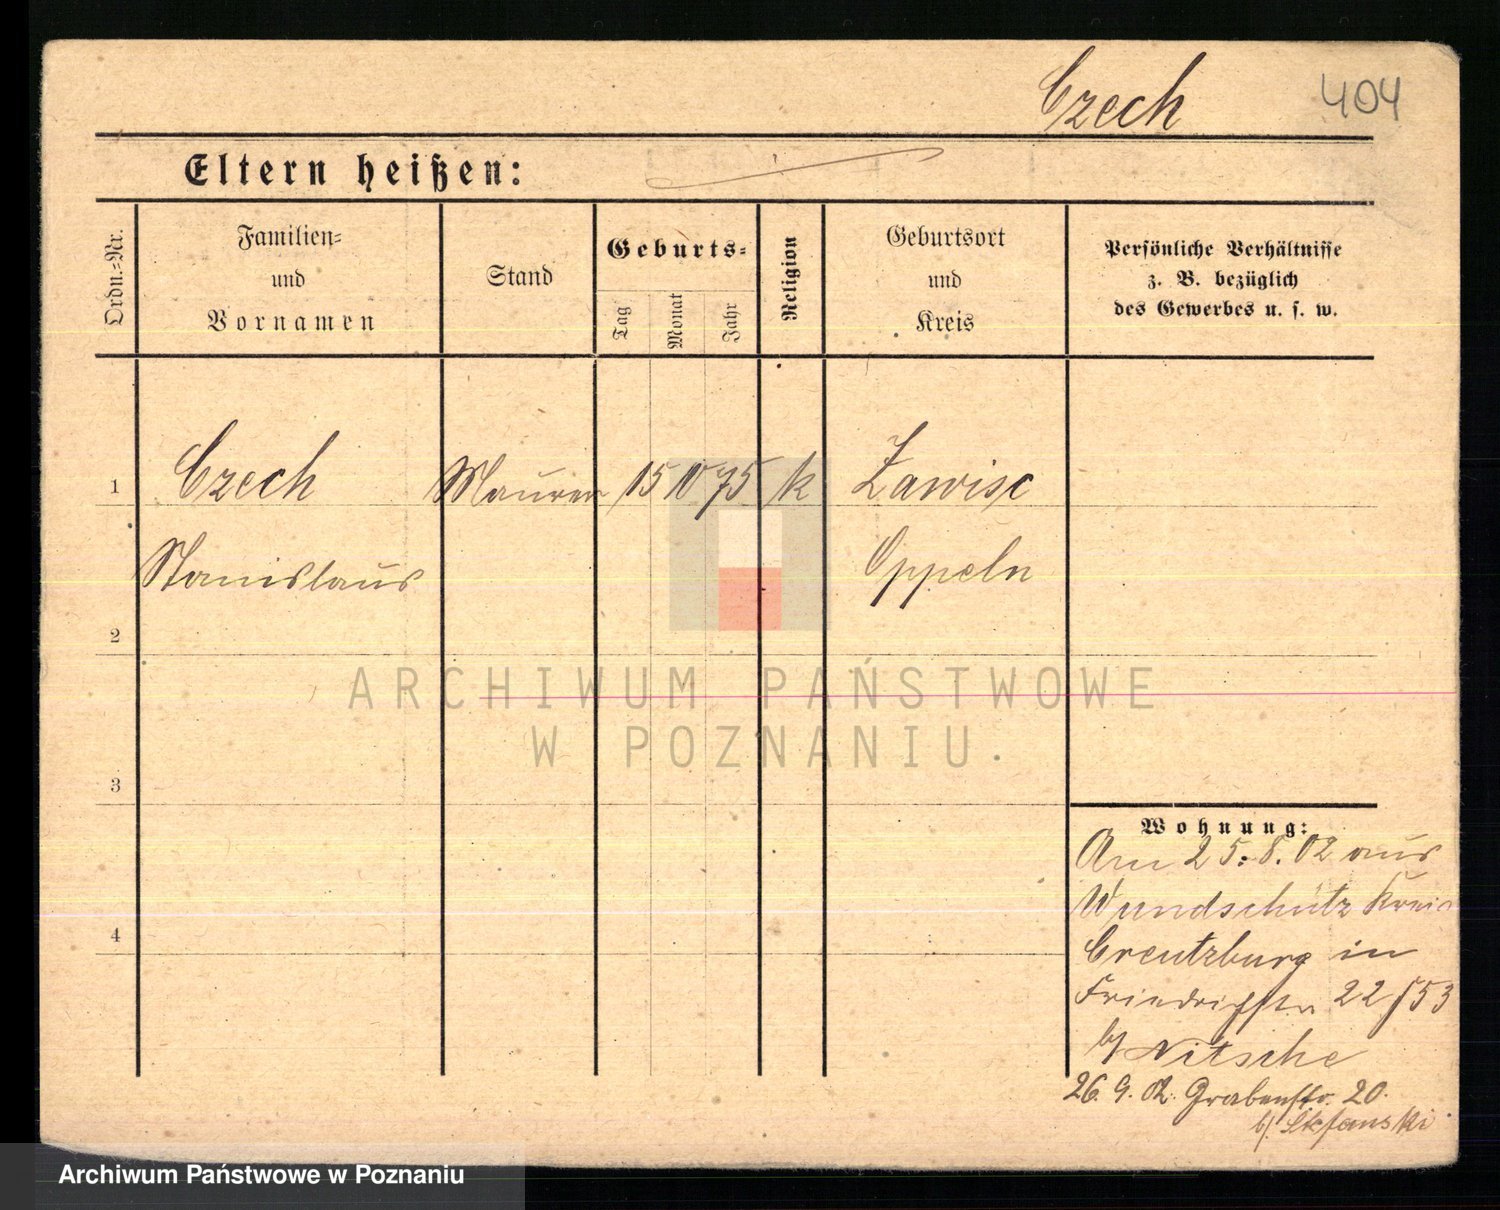 Czech
404
Eltern heißen:
Ordn.=Nr.
Familien=
und
Vornamen
Stand
Geburts=
Tag
Monat
Jahr
Religion
Geburtsort
und
Kreis
Persönliche Verhältnisse
z. B. bezüglich
des Gewerbes u. s. w.
1
Czech
Maurer
15 10 75
k
Zawisc
Stanislaus
Oppeln
2
ARCHIWUM PAŃSTWOWE
W POZNANIU.
3
Wohnung:
Am 25.8.02 aus
Wundschütz Kreis
4
Creutzburg in
Friedrichstr 22/53
b/ Nitsche
26.9.02. Grabenstr. 20.
b/. Stefanski
Archiwum Państwowe w Poznaniu